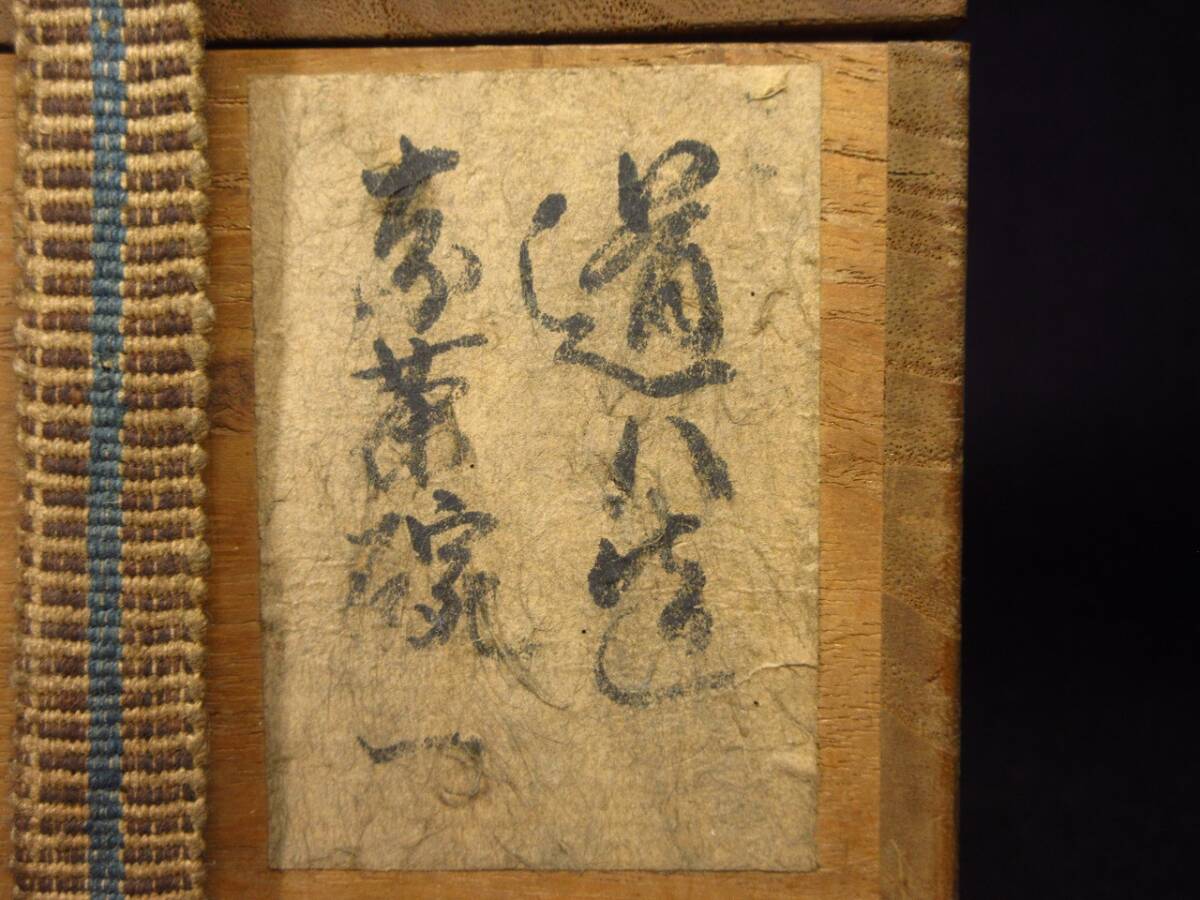 道八造
茶碗 一